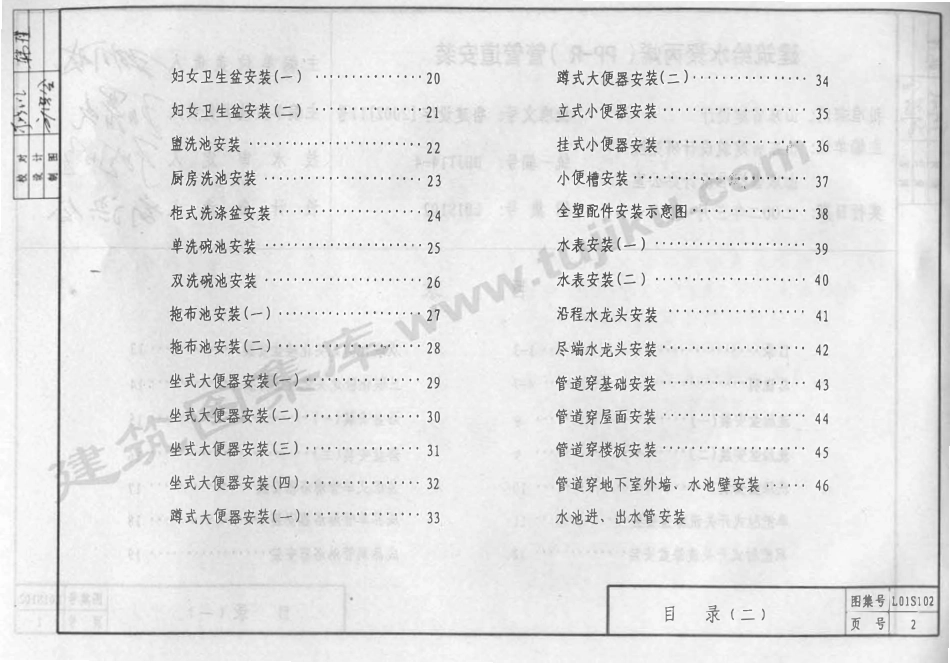 妇女卫生盆安装(一) 20
妇女卫生盆安装(二) 21
盥洗池安装 22
厨房洗池安装 23
柜式洗涤盆安装 24
单洗碗池安装 25
双洗碗池安装 26
拖布池安装(一) 27
拖布池安装(二) 28
坐式大便器安装(一) 29
坐式大便器安装(二) 30
坐式大便器安装(三) 31
坐式大便器安装(四) 32
蹲式大便器安装(一) 33
蹲式大便器安装(二) 34
立式小便器安装 35
挂式小便器安装 36
小便槽安装 37
全塑配件安装示意图 38
水表安装(一) 39
水表安装(二) 40
沿程水龙头安装 41
尽端水龙头安装 42
管道穿基础安装 43
管道穿屋面安装 44
管道穿楼板安装 45
管道穿地下室外墙、水池壁安装 46
水池进、出水管安装
校对
设计
制图
目 录(二)
图集号 L01S102
页 号 2
建筑图集库 www.tujiku.com